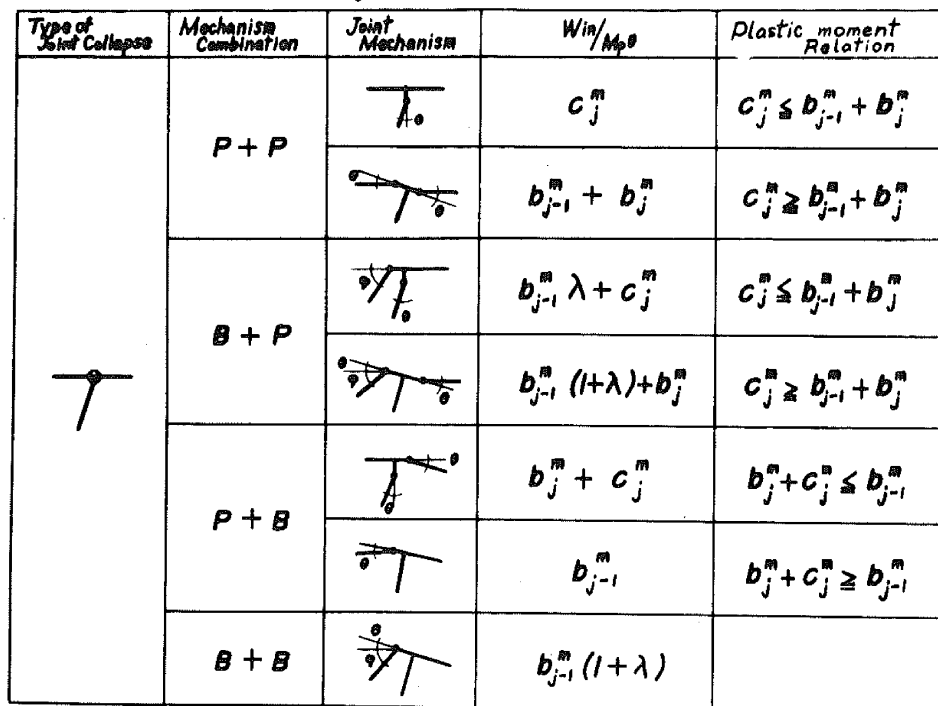 Type of Joint Collapse
Mechanism Combination
Joint Mechanism
Win/Mpθ
Plastic moment Relation
P + P
θ
c_j^m
c_j^m ≦ b_{j-1}^m + b_j^m
θ
θ
b_{j-1}^m + b_j^m
c_j^m ≧ b_{j-1}^m + b_j^m
B + P
φ
θ
b_{j-1}^m λ + c_j^m
c_j^m ≦ b_{j-1}^m + b_j^m
θ
φ
θ
b_{j-1}^m (1+λ) + b_j^m
c_j^m ≧ b_{j-1}^m + b_j^m
P + B
θ
θ
b_j^m + c_j^m
b_j^m + c_j^m ≦ b_{j-1}^m
θ
b_{j-1}^m
b_j^m + c_j^m ≧ b_{j-1}^m
B + B
θ
φ
b_{j-1}^m (1 + λ)